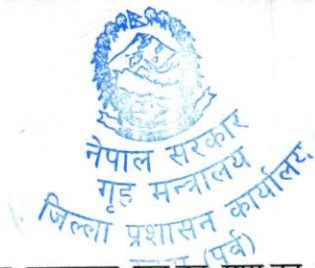 नेपाल सरकार
गृह मन्त्रालय
जिल्ला प्रशासन कार्यालय
(पूर्व)